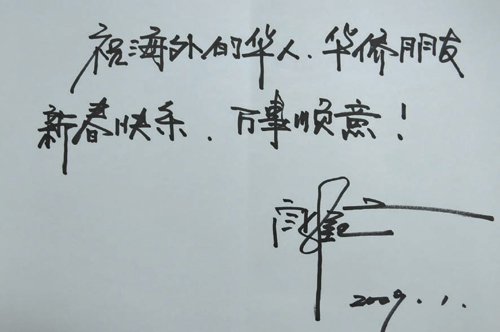 祝海外的华人、华侨朋友
新春快乐、万事顺意！
2009.1.